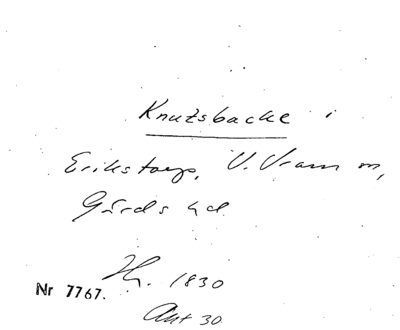 Knutsbacke i
Erikstorp, V. Vram m,
Gärds hd.
Hr. 1830
Nr 7767.
Akt 30